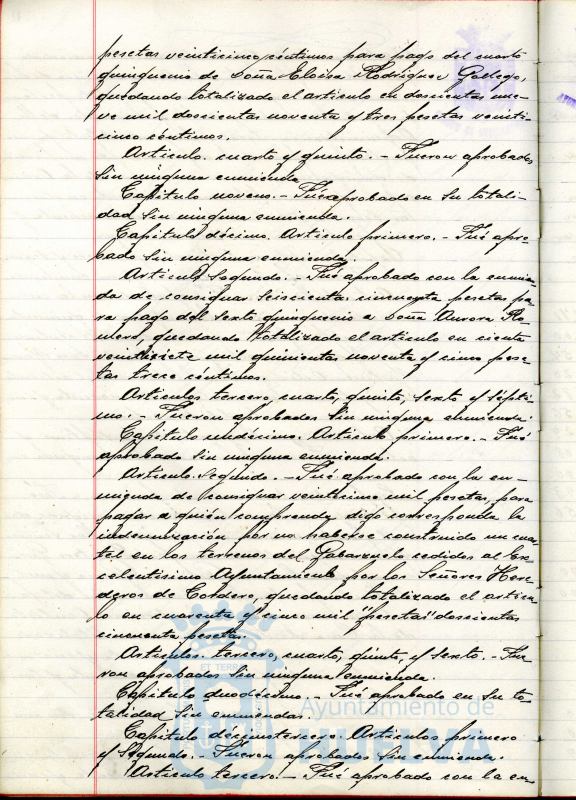 pesetas veinticinco céntimos para pago del cuarto
quinquenio de Doña Eloisa Rodriguez Gallego,
quedando totalizado el articulo en doscientas nue-
ve mil doscientas noventa y tres pesetas veinti-
cinco céntimos.
Articulo cuarto y quinto. - Fueron aprobados
sin ninguna enmienda
Capitulo noveno. - Fué aprobado en su totali-
dad sin ninguna enmienda.
Capitulo décimo. Articulo primero. - Fué apro-
bado sin ninguna enmienda.
Articulo segundo. - Fué aprobado con la enmien-
da de consignar seiscientas cincuenta pesetas pa-
ra pago del sexto quinquenio a Doña Aurora Ro-
mero, quedando totalizado el articulo en ciento
veintisiete mil quinientas noventa y cinco pese-
tas trece céntimos.
Articulos tercero, cuarto, quinto, sexto y sépti-
mo. - Fueron aprobados sin ninguna enmienda.
Capitulo undécimo. Articulo primero. - Fué
aprobado sin ninguna enmienda.
Articulo segundo. - Fué aprobado con la en-
mienda de consignar veinticinco mil pesetas, para
pagar a quién comprenda digo corresponda la
indemnización por no haberse construido un cuar-
tel en los terrenos del cedidos al Ex-
celentisimo Ayuntamiento por los Señores Here-
deros de Cordero, quedando totalizado el articu-
lo en cuarenta y cinco mil "pesetas" doscientas
cincuenta pesetas.
Articulos tercero, cuarto, quinto, y sexto. - Fue-
ron aprobados sin ninguna enmienda.
Capitulo duodécimo. - Fué aprobado en su to-
talidad sin enmiendas.
Capitulo décimotercero. Articulos primero
y segundo. - Fueron aprobados sin enmienda.
Articulo tercero. - Fué aprobado con la en-
ET TERRÆ
Ayuntamiento de
HUELVA